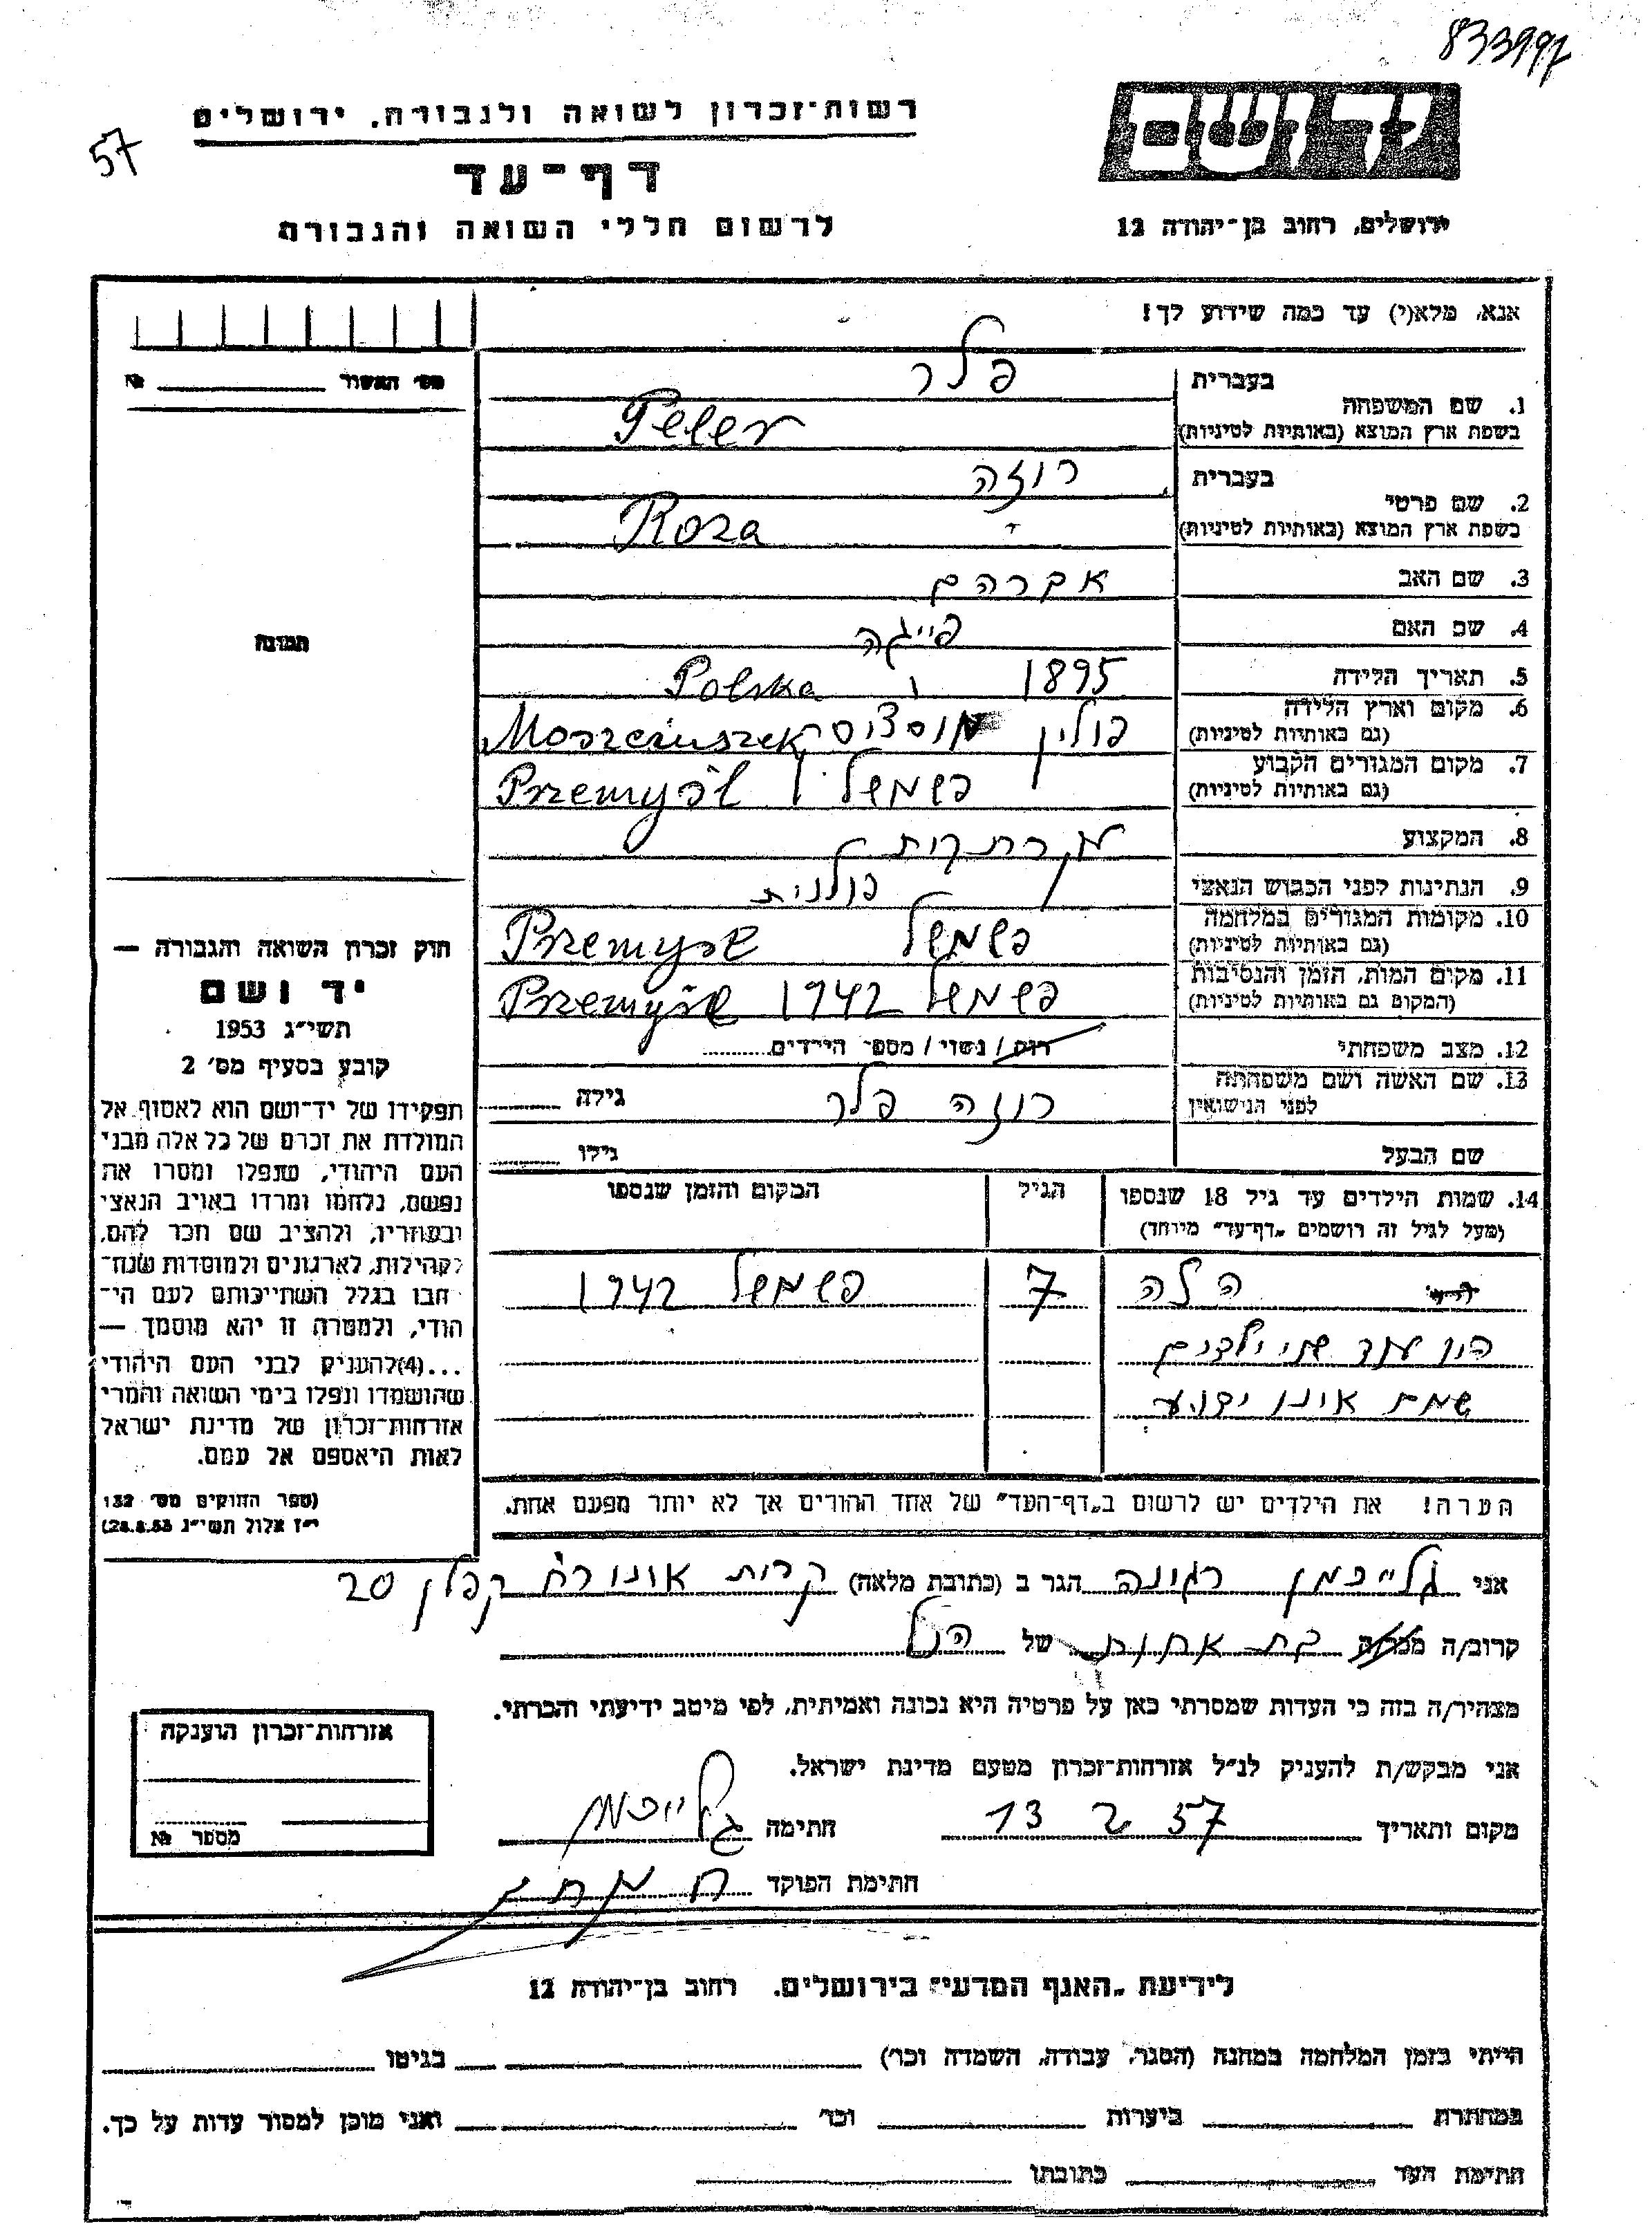 833997
57
רשות-זכרון לשואה ולגבורה, ירושלים
דף-עד
לרשום חללי השואה והגבורה
יד ושם
ירושלים, רחוב בן-יהודה 12
אנא, מלא(י) עד כמה שידוע לך!
1. שם המשפחה בעברית פלר
בשפת ארץ המוצא (באותיות לטיניות) Peler
2. שם פרטי בעברית רוזה
בשפת ארץ המוצא (באותיות לטיניות) Roza
3. שם האב אברהם
4. שם האם פייגה
5. תאריך הלידה 1895 Polska
6. מקום וארץ הלידה (גם באותיות לטיניות) פולין
7. מקום המגורים הקבוע (גם באותיות לטיניות) פשמשל Przemyśl
8. המקצוע
9. הנתינות לפני הכבוש הנאצי פולנית
10. מקומות המגורים במלחמה (גם באותיות לטיניות) פשמשל Przemyśl
11. מקום המות, הזמן והנסיבות (המקום גם באותיות לטיניות) פשמשל 1942 Przemyśl
12. מצב משפחתי רוק / נשוי / מספר הילדים
13. שם האשה ושם משפחתה לפני הנישואין רוזה פלר גילה
שם הבעל גילו
14. שמות הילדים עד גיל 18 שנספו הגיל המקום והזמן שנספו
(מעל לגיל זה רושמים "דף-עד" מיוחד)
הלה 7 פשמשל 1942
היו עוד שני ילדים
שמם אינו ידוע
הערה! את הילדים יש לרשום ב"דף-העד" של אחד ההורים אך לא יותר מפעם אחת.
מס' האשור №
תמונה
חוק זכרון השואה והגבורה —
יד ושם
תשי"ג 1953
קובע בסעיף מס' 2
תפקידו של יד-ושם הוא לאסוף אל
המולדת את זכרם של כל אלה מבני
העם היהודי, שנפלו ומסרו את
נפשם, נלחמו ומרדו באויב הנאצי
ובעוזריו, ולהציב שם וזכר להם,
לקהילות, לארגונים ולמוסדות שנח-
רבו בגלל השתייכותם לעם הי-
הודי, ולמטרה זו יהא מוסמך —
...(4) להעניק לבני העם היהודי
שהושמדו ונפלו בימי השואה והמרי
אזרחות-זכרון של מדינת ישראל
לאות היאספם אל עמם.
(ספר החוקים מס' 132
י"ז אלול תשי"ג 28.8.53)
אני גלייכמן רגינה הגר ב (כתובת מלאה) קרית אונו רח קפלן 20
קרוב/ה מכר/ה בת אחות של הנ"ל
מצהיר/ה בזה כי העדות שמסרתי כאן על פרטיה היא נכונה ואמיתית, לפי מיטב ידיעתי והכרתי.
אני מבקש/ת להעניק לנ"ל אזרחות-זכרון מטעם מדינת ישראל.
מקום ותאריך 13 2 57 חתימה גלייכמן
חתימת הפוקד
אזרחות-זכרון הוענקה
מספר №
לידיעת "האגף המדעי" בירושלים, רחוב בן-יהודה 12
הייתי בזמן המלחמה במחנה (הסגר, עבודה, השמדה וכו') בגיטו
במחתרת ביערות וכו' ואני מוכן למסור עדות על כך.
חתימת העד כתובתו